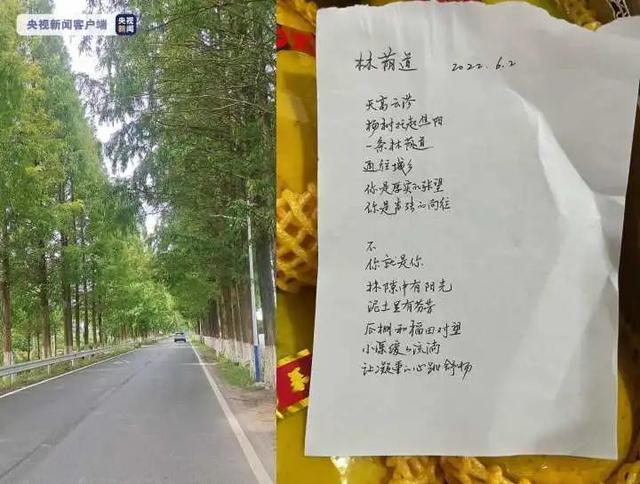 央视新闻客户端
央视
新闻
林荫道 2022.6.2
天高云淡
杨树托起焦阳
一条林荫道
通往城乡
你是厚实的张望
你是声张的向往
不
你就是你
林隙中有阳光
泥土里有芬芳
瓜棚和稻田对望
小溪缓缓流淌
让凝重的心跳舒畅